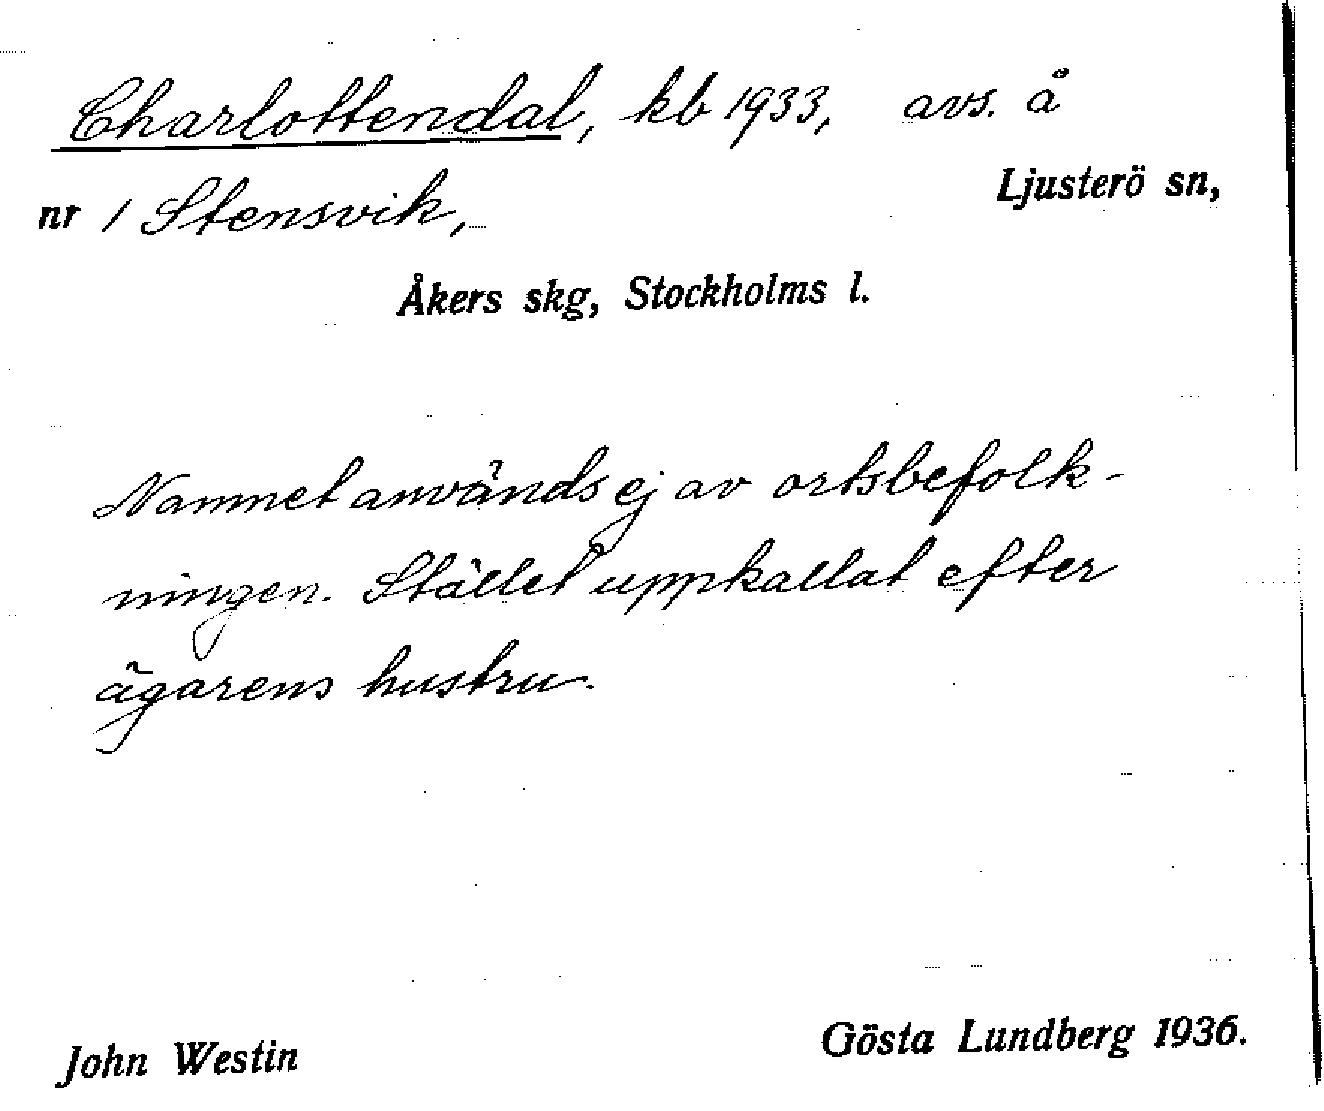 Charlottendal, kb 1933, avs. å
nr 1 Stensvik, Ljusterö sn,
Åkers skg, Stockholms l.
Namnet används ej av ortsbefolk-
ningen. Stället uppkallat efter
ägarens hustru.
John Westin Gösta Lundberg 1936.